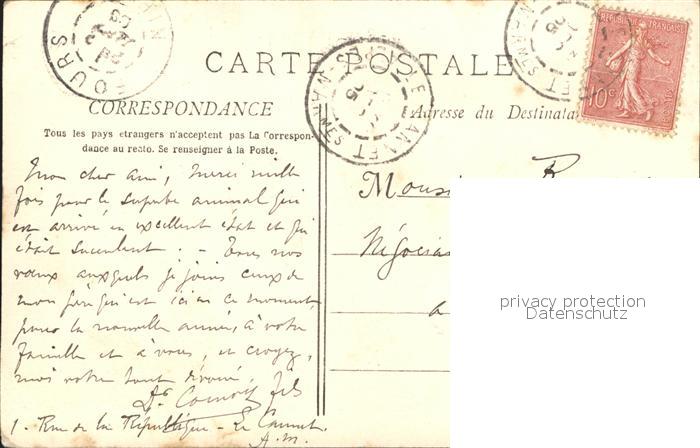 CARTE POSTALE
REPUBLIQUE FRANÇAISE
10c
TOURS
LE CANNET
CORRESPONDANCE
Adresse du Destinata
Tous les pays etrangers n'acceptent pas La Correspon-
dance au recto. Se renseigner à la Poste.
Mon cher ami, merci mille
fois pour le superbe animal qui
est arrivé en excellent état et qui
était succulent. - Tous nos
vœux auxquels je joins ceux de
mon père qui est ici en ce moment,
pour la nouvelle année, à votre
famille et à vous, et croyez
moi votre tout dévoué.
Dr fils
1. Rue de la République - Le Cannet.
A. M.
Négocia
a
privacy protection
Datenschutz